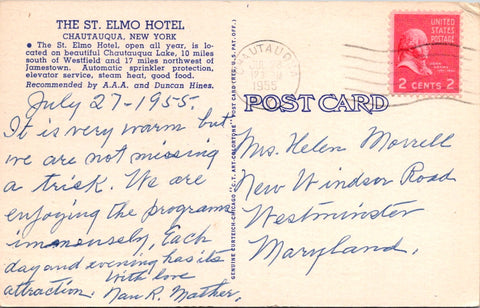 THE ST. ELMO HOTEL
CHAUTAUQUA, NEW YORK
● The St. Elmo Hotel, open all year, is lo-
cated on beautiful Chautauqua Lake, 10 miles
south of Westfield and 17 miles northwest of
Jamestown. Automatic sprinkler protection,
elevator service, steam heat, good food.
Recommended by A.A.A. and Duncan Hines.
July 27-1955.
It is very warm but
we are not missing
a trick. We are
enjoying the programs
immensely, Each
day and evening has its
attraction. With love
Nan R. Mather.
GENUINE CURTEICH-CHICAGO "C.T. ART-COLORTONE" POST CARD (REG. U.S. PAT. OFF.)
CHAUTAUQUA
JUL
1955
UNITED
STATES
POSTAGE
2 CENTS 2
POST CARD
Mrs. Helen Morrell
New Windsor Road
Westminster
Maryland.